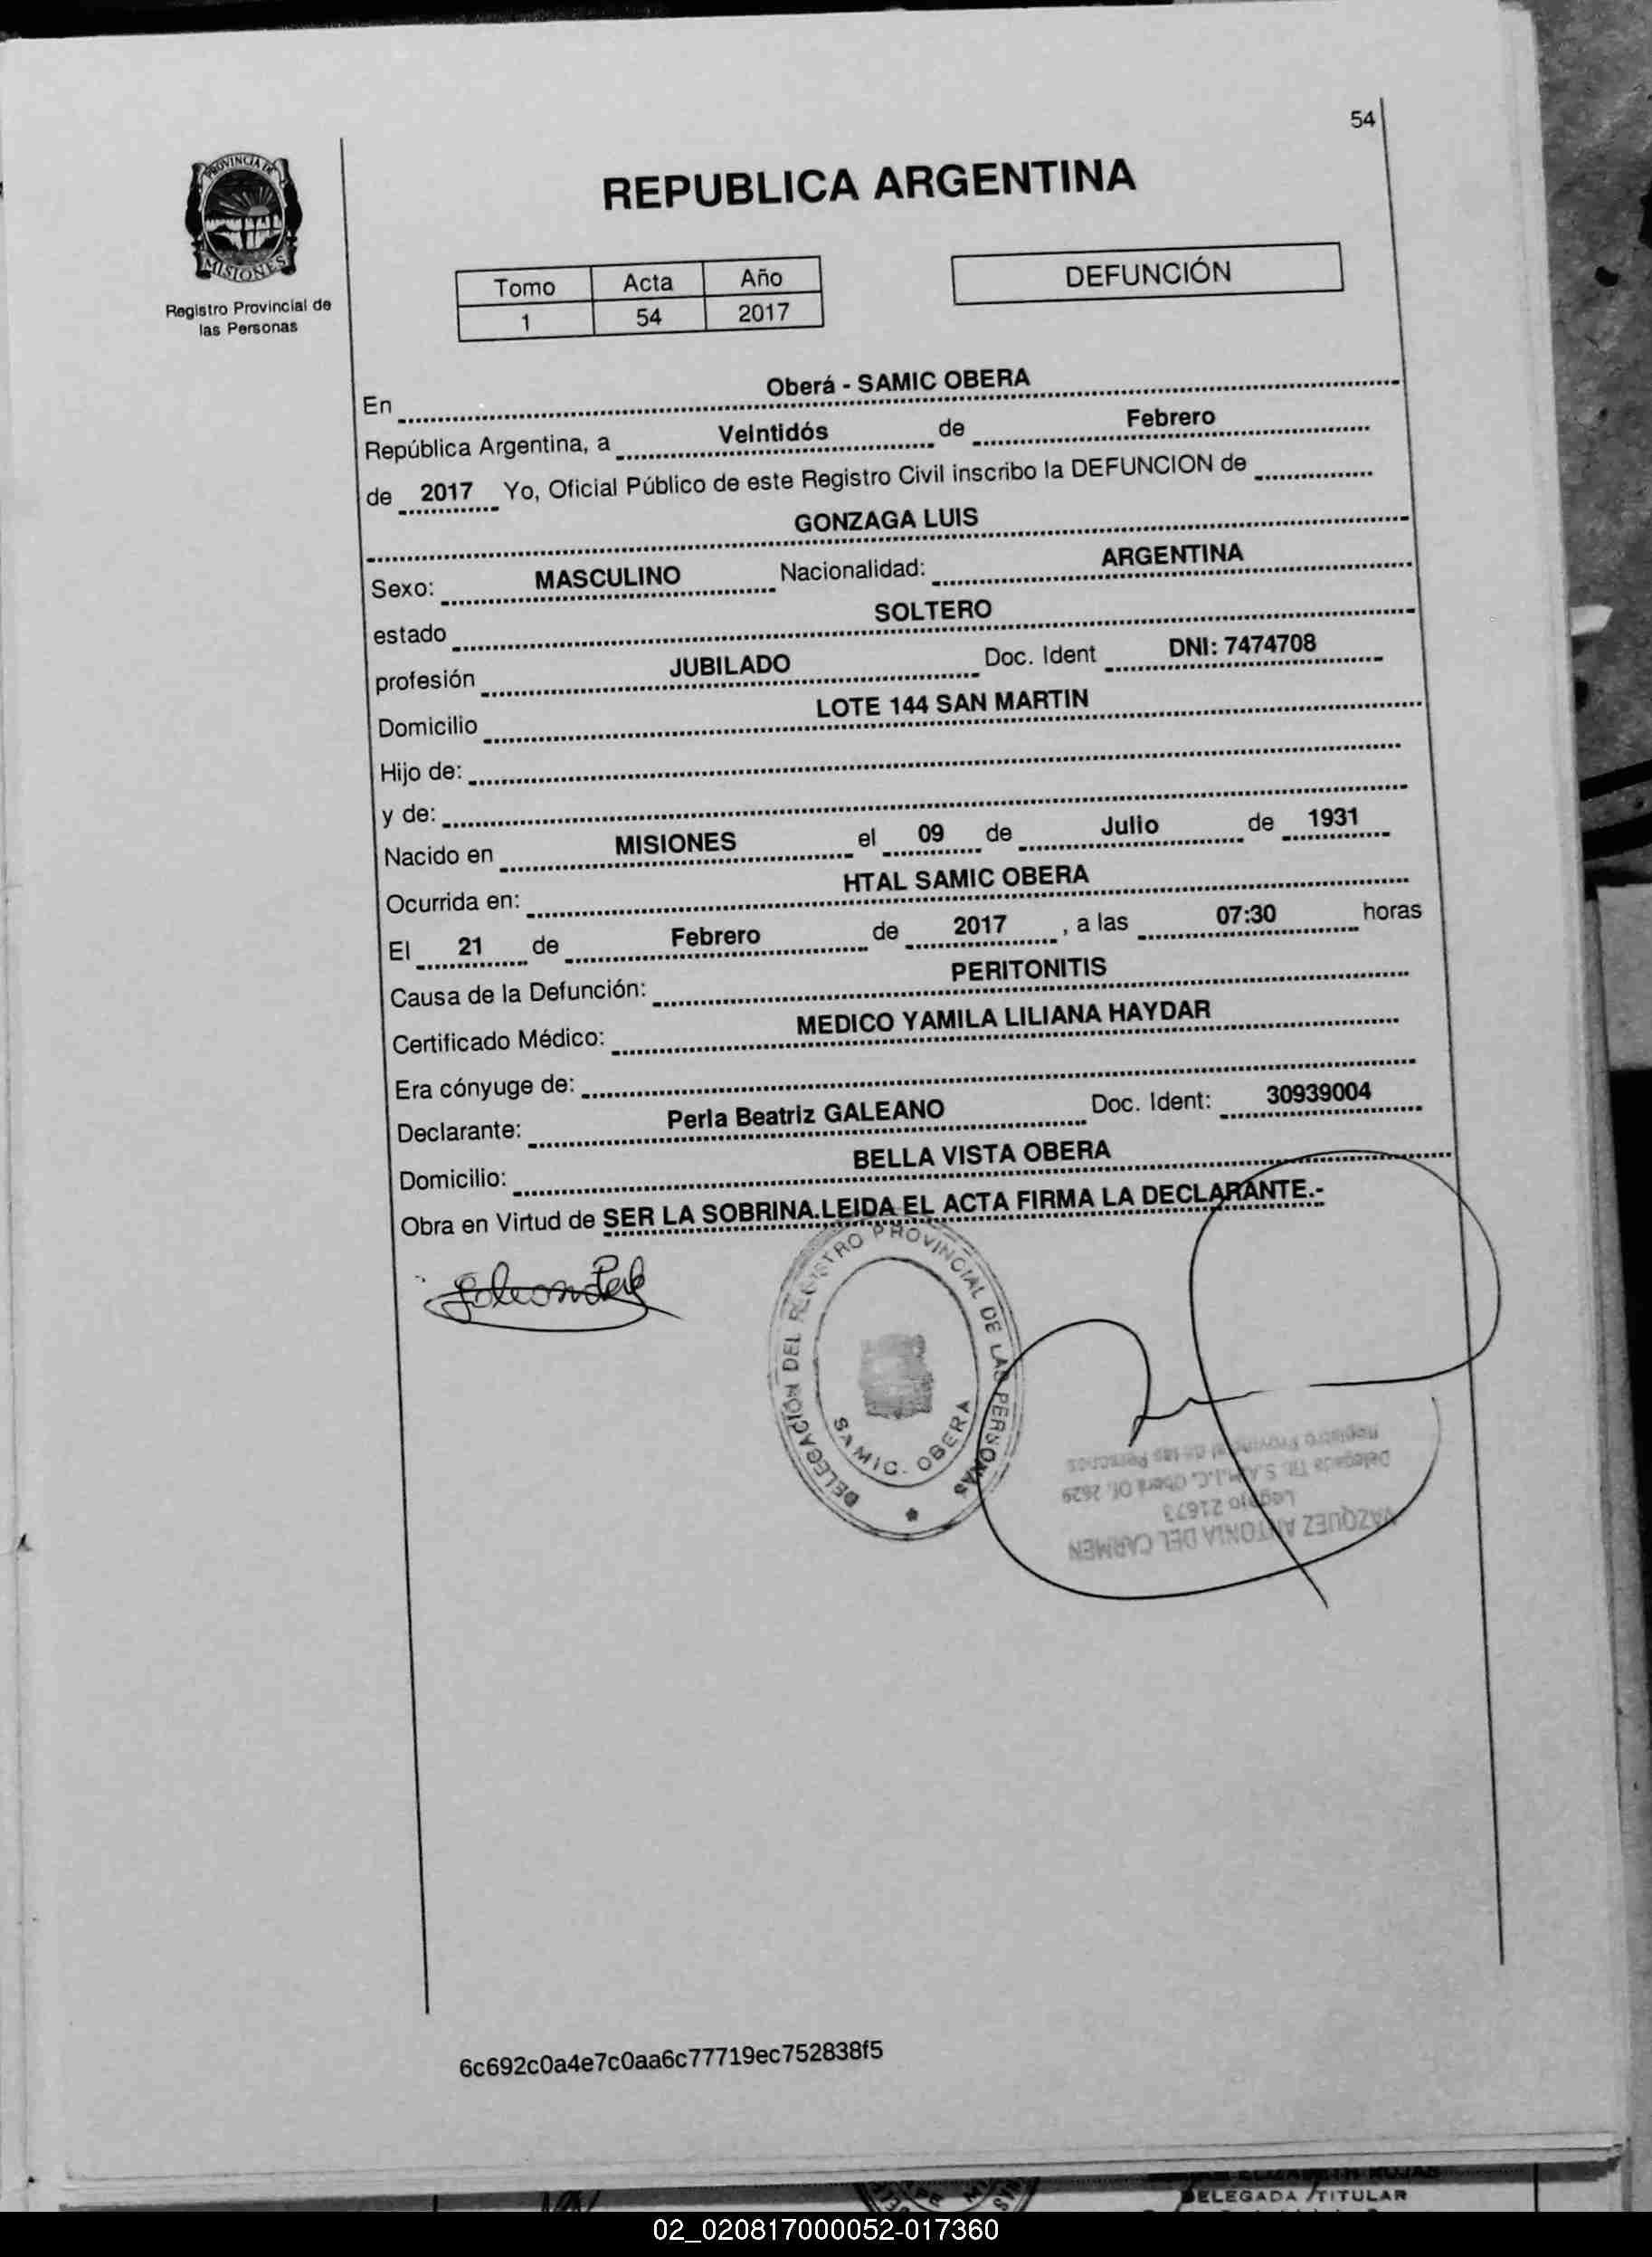 54
PROVINCIA DE
MISIONES
Registro Provincial de
las Personas
REPUBLICA ARGENTINA
Tomo Acta Año
1 54 2017
DEFUNCIÓN
En Oberá - SAMIC OBERA
República Argentina, a Veintidós de Febrero
de 2017 Yo, Oficial Público de este Registro Civil inscribo la DEFUNCION de
GONZAGA LUIS
Sexo: MASCULINO Nacionalidad: ARGENTINA
estado SOLTERO
profesión JUBILADO Doc. Ident DNI: 7474708
Domicilio LOTE 144 SAN MARTIN
Hijo de:
y de:
Nacido en MISIONES el 09 de Julio de 1931
Ocurrida en: HTAL SAMIC OBERA
El 21 de Febrero de 2017, a las 07:30 horas
Causa de la Defunción: PERITONITIS
Certificado Médico: MEDICO YAMILA LILIANA HAYDAR
Era cónyuge de:
Declarante: Perla Beatriz GALEANO Doc. Ident: 30939004
Domicilio: BELLA VISTA OBERA
Obra en Virtud de SER LA SOBRINA.LEIDA EL ACTA FIRMA LA DECLARANTE.-
DELEGACIÓN DEL REGISTRO PROVINCIAL DE LAS PERSONAS
SAMIC. OBERA
VAZQUEZ ANTONIA DEL CARMEN
Legajo 21673
Delegada Tit. S.A.M.I.C. Oberá Of. 2629
Registro Provincial de las Personas
6c692c0a4e7c0aa6c77719ec752838f5
ELIZABETH ROJAS
DELEGADA TITULAR
02_020817000052-017360